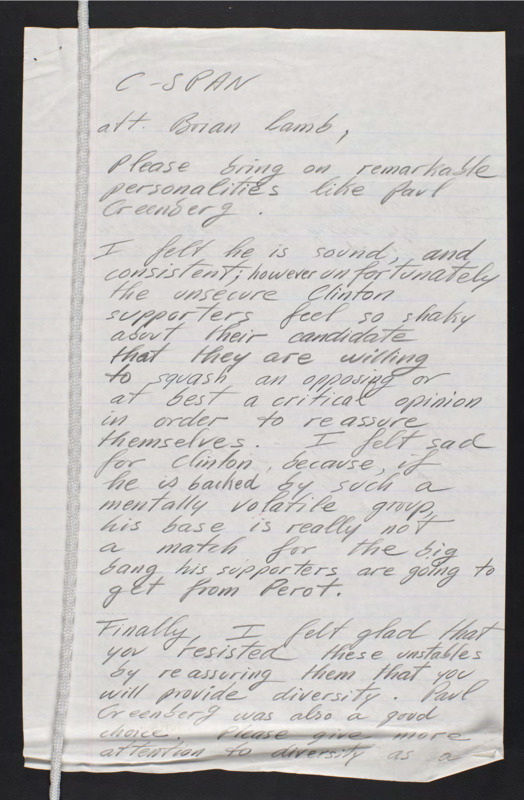 C-SPAN
att. Brian Lamb,
Please bring on remarkable
personalities like Paul
Greenberg.
I felt he is sound, and
consistent; however unfortunately
the unsecure Clinton
supporters feel so shaky
about their candidate
that they are willing
to squash an opposing or
at best a critical opinion
in order to reassure
themselves. I felt sad
for Clinton, because, if
he is backed by such a
mentally volatile group,
his base is really not
a match for the big
bang his supporters are going to
get from Perot.
Finally, I felt glad that
you resisted these unstables
by reassuring them that you
will provide diversity. Paul
Greenberg was also a good
choice. Please give more
attention to diversity as a